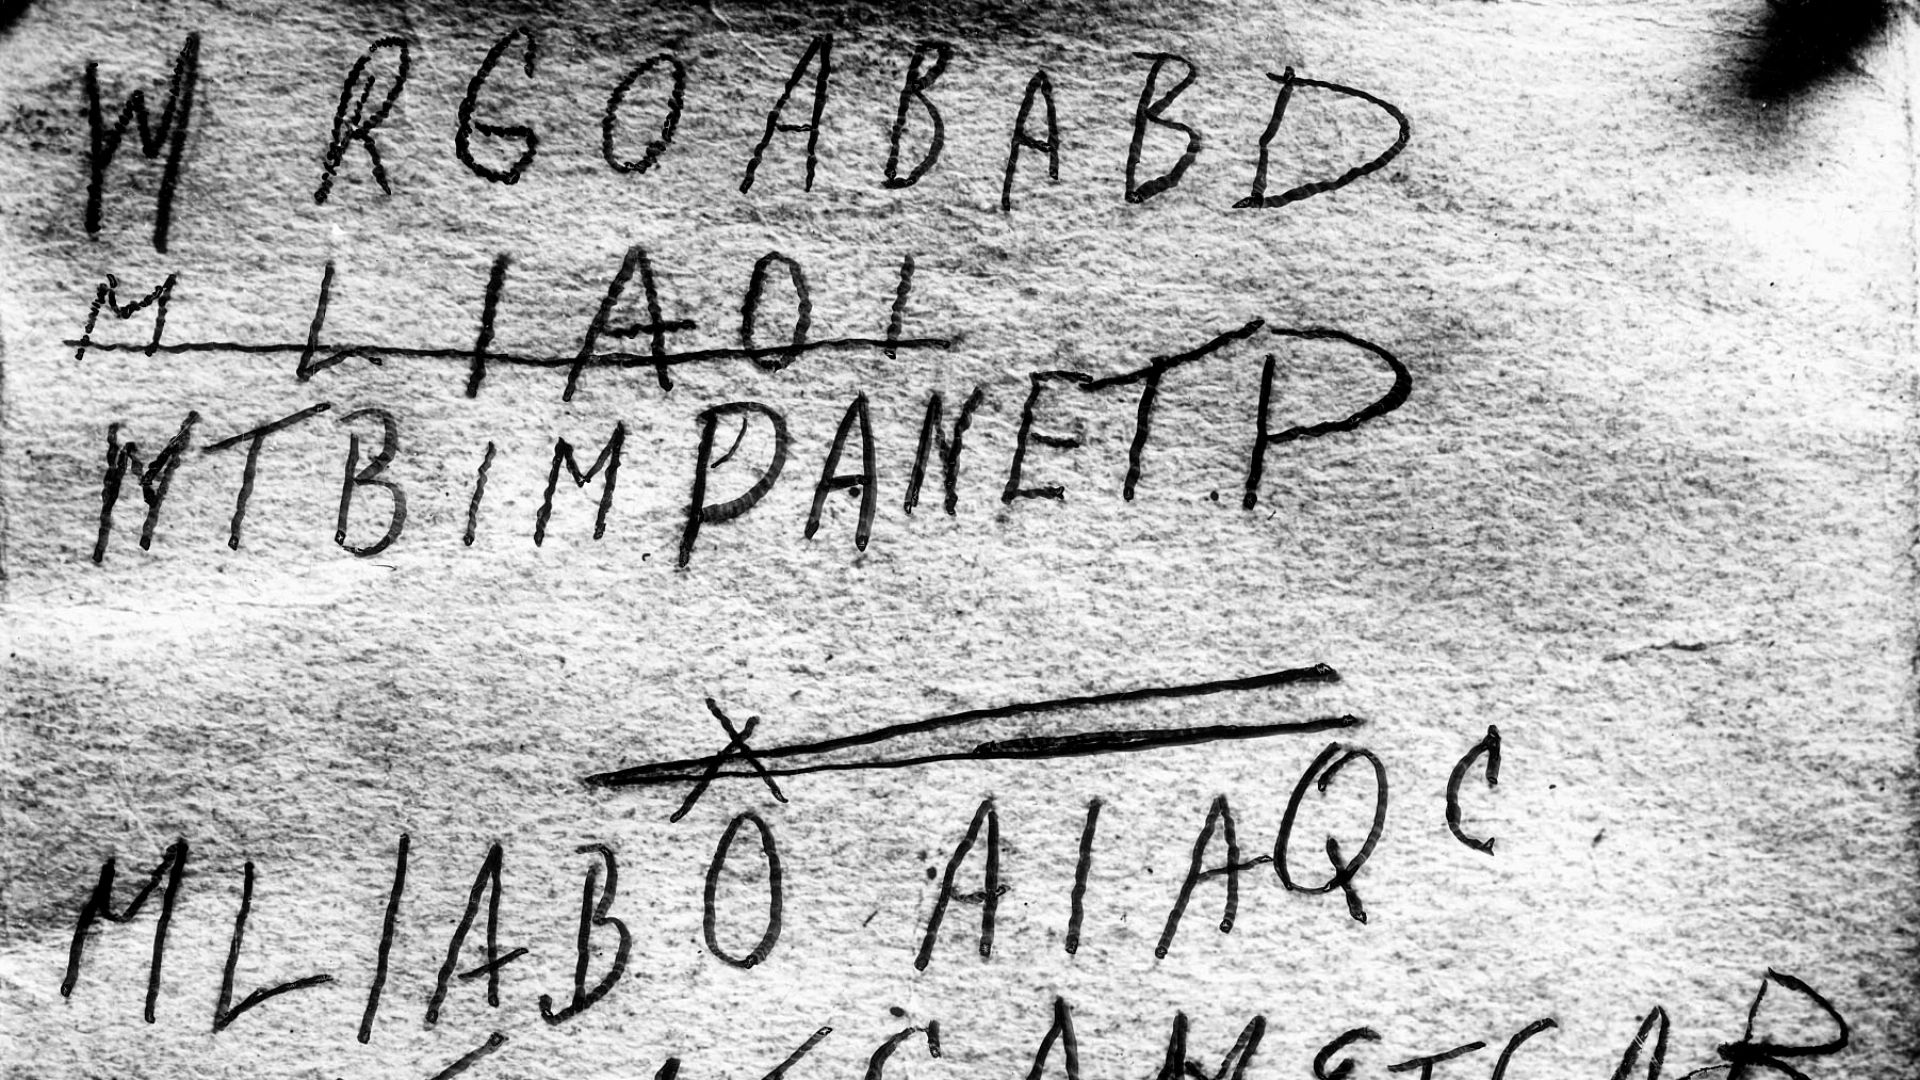 W RGOABABD
M L I A O I
WTBIMPANETP
MLIABO AIAQC